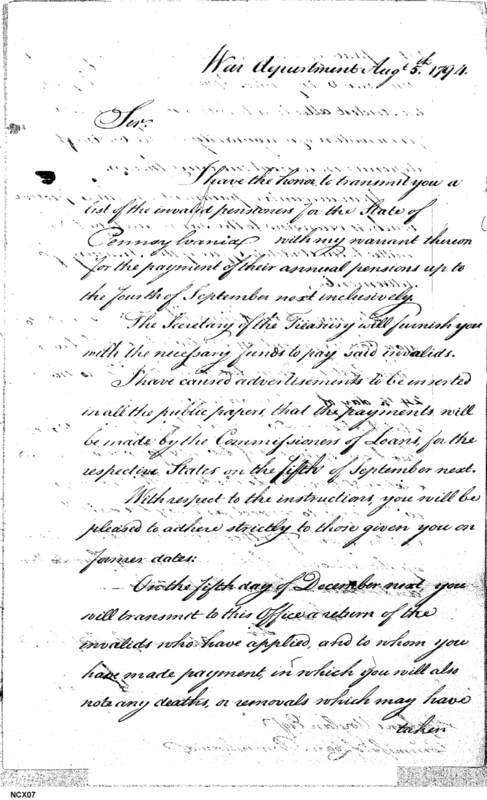 War department Augt 5th. 1794.
Sir.
I have the honor to transmit you a
list of the invalid pensioners for the State of
Pennsylvania with my warrant thereon
for the payment of their annual pensions up to
the fourth of September next inclusively.
The Secretary of the Treasury will furnish you
with the necessary funds to pay said invalids.
I have caused advertisements to be inserted
in all the public papers, that the payments will
be made by the Commissioners of Loans, for the
respective States on the fifth of September next.
With respect to the instructions, you will be
pleased to adhere strictly to those given you on
former dates:
On the fifth day of December next, you
will transmit to this Office a return of the
invalids who have applied, and to whom you
have made payment, in which you will also
note any deaths, or removals which may have
taken
NCX07